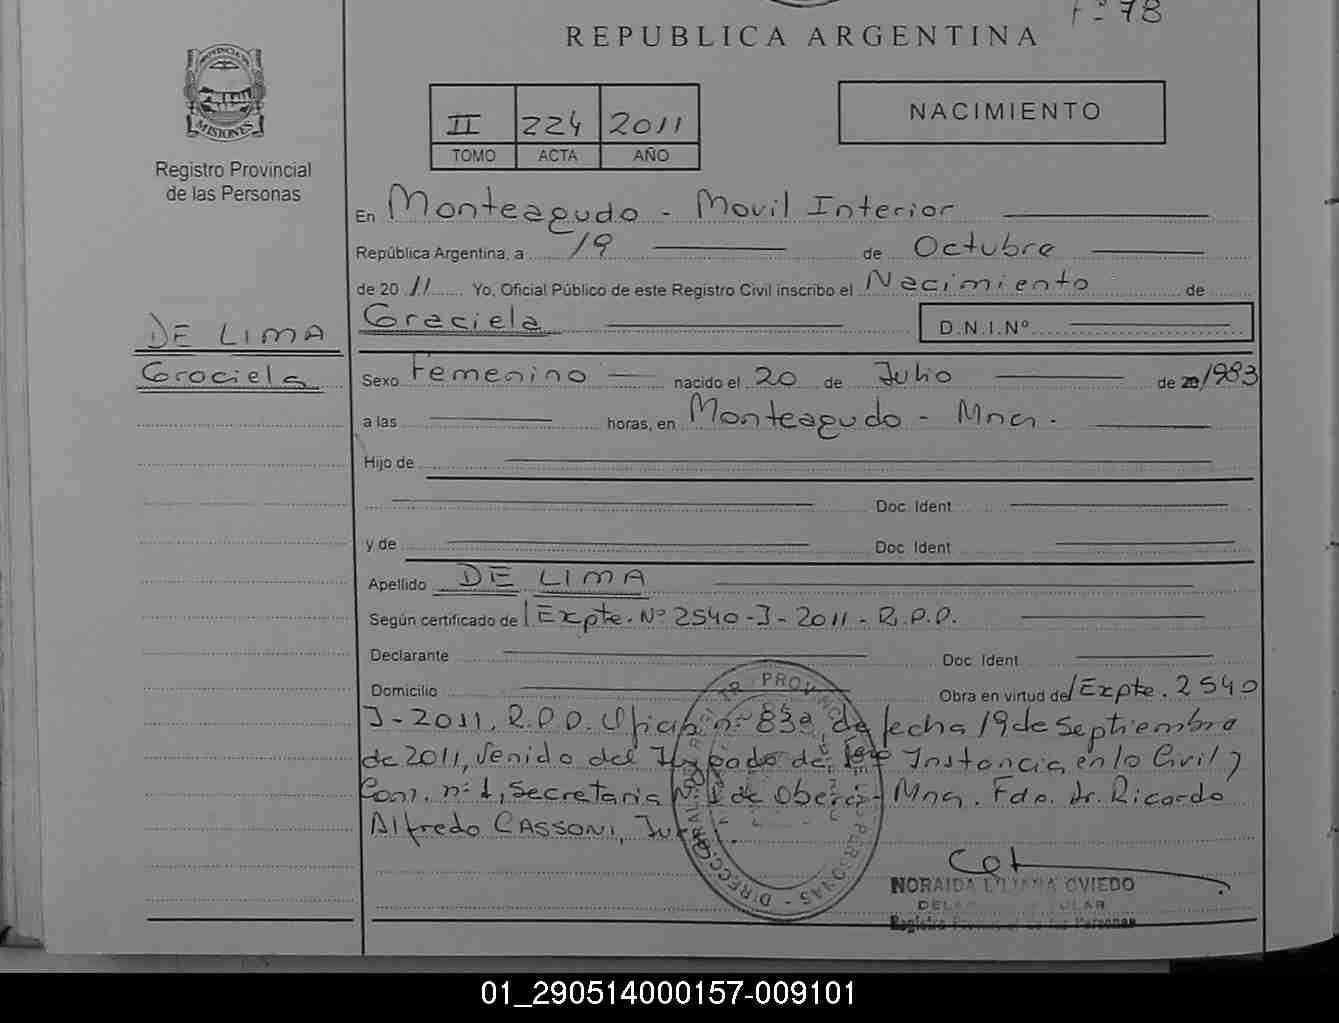 Fº 78
REPUBLICA ARGENTINA
PROVINCIA DE
MISIONES
Registro Provincial
de las Personas
II 224 2011
TOMO ACTA AÑO
NACIMIENTO
En Monteagudo - Movil Interior
República Argentina, a 19 de Octubre
de 20 11 Yo, Oficial Público de este Registro Civil inscribo el Nacimiento de
Graciela D.N.I.Nº
DE LIMA
Graciela
Sexo Femenino nacido el 20 de Julio de 20 1983
a las horas, en Monteagudo - Mnes.
Hijo de
Doc. Ident
y de Doc. Ident
Apellido DE LIMA
Según certificado de Expte. Nº 2540-J-2011-R.P.P.
Declarante Doc. Ident
Domicilio Obra en virtud de Expte. 2540
J-2011, R.P.P. Oficio nº 839, de fecha 19 de Septiembre
de 2011, venido del Juzgado de 1era Instancia en lo Civil y
Com. nº 1, Secretaria Nº 1 de Obera - Mnes. Fdo. Dr. Ricardo
Alfredo CASSONI, Juez.
NORAIDA LILIANA OVIEDO
Registro Provincial de las Personas
01_290514000157-009101